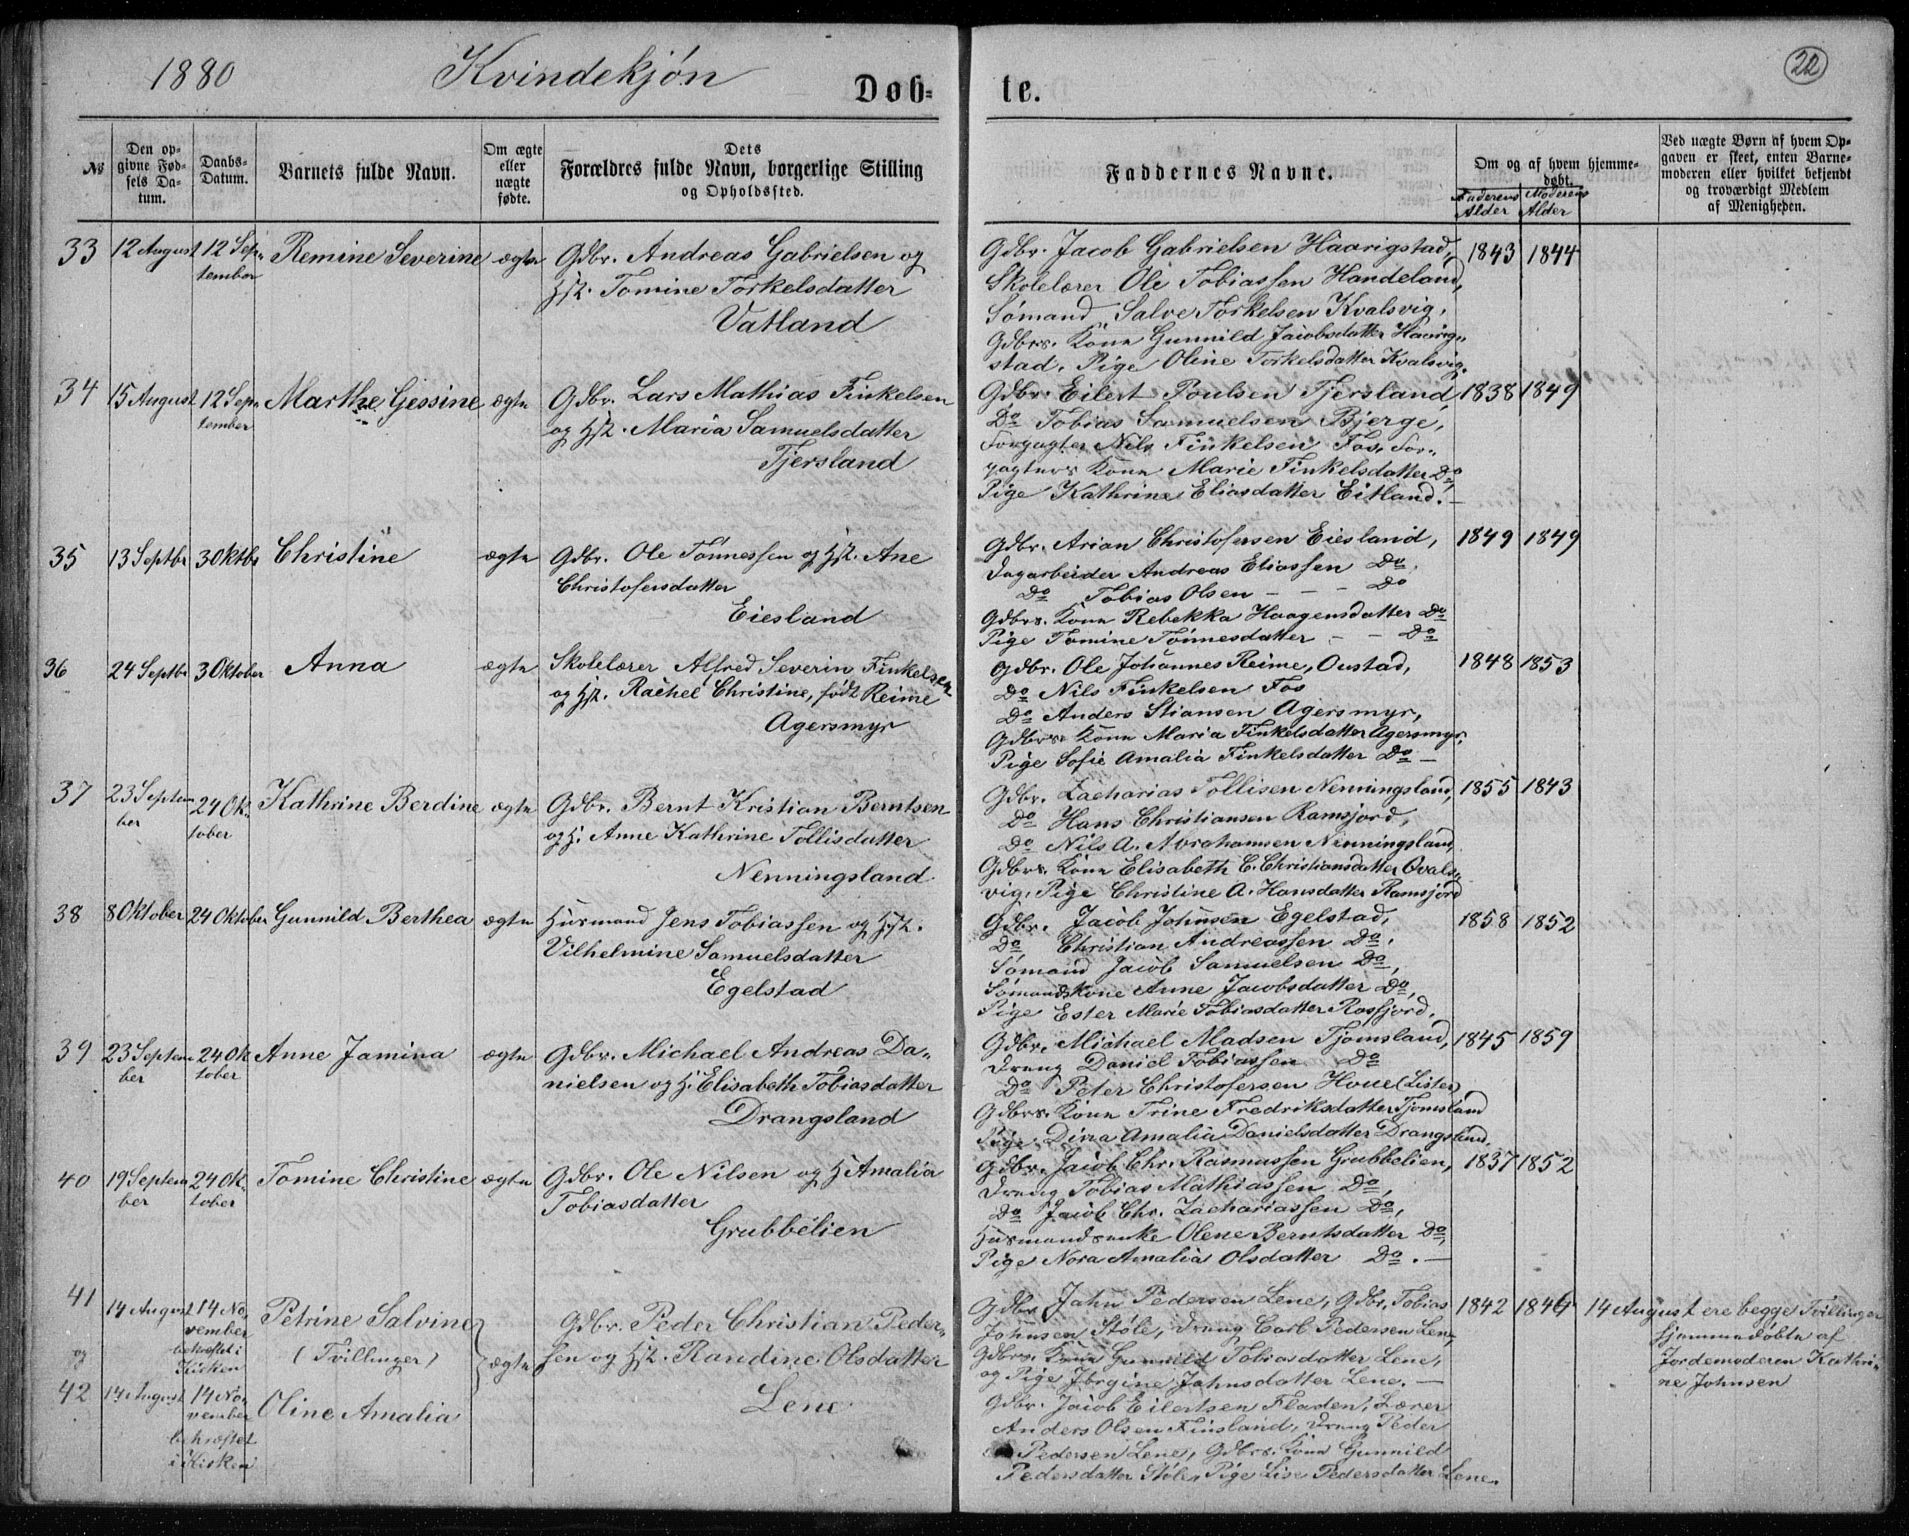 1880 Kvindekjøn
Døb- te.
22
No
Den op-
givne Fød-
sels Da-
tum.
Daabs-
Datum.
Barnets fulde Navn.
Om ægte
eller
uægte
fødte.
Dets
Forældres fulde Navn, borgerlige Stilling
og Opholdssted.
Faddernes Navne.
Om og af hvem hjemme-
døbt.
Faderens
Alder
Moderens
Alder
Ved uægte Børn af hvem Op-
gaven er skeet, enten Barne-
moderen eller hvilket bekjendt
og troværdigt Medlem
af Menigheden.
33
12 August
12 Sep-
tember
Remine Severine
ægte
Gdbr. Andreas Gabrielsen og
Hst. Tomine Torkelsdatter
Vatland
Gdbr. Jacob Gabrielsen Haarigstad,
Skolelærer Ole Tobiassen Handeland,
Sømand Salve Torkelsen Kvalsvig,
Gdbrs. Kone Gunnild Jacobsdatter Haarig-
stad, Pige Oline Torkelsdatter Kvalsvig.
1843
1844
34
15 August
12 Sep-
tember
Marthe Gessine
ægte
Gdbr. Lars Mathias Finkelsen
og Hst. Maria Samuelsdatter
Tjersland
Gdbr. Eilert Poulsen Tjersland,
Do Tobias Samuelsen Bjerge,
Forpagter Nils Finkelsen Fos, For-
pagters Kone Marie Finkelsdatter Do,
Pige Kathrine Eliasdatter Eitland.
1838
1849
35
13 Septbr
3 Oktbr
Christine
ægte
Gdbr. Ole Tønnessen og Hst. Ane
Christofersdatter
Eiesland
Gdbr. Arian Christofersen Eiesland,
Dagarbeider Andreas Eliassen Do,
Do Tobias Olsen - - - Do
Gdbrs. Kone Rebekka Haagensdatter Do
Pige Tomine Tønnesdatter - - Do
1849
1849
36
24 Septbr
3 Oktober
Anna
ægte
Skolelærer Alfred Severin Finkelsen
og Hst. Rachel Christine, født Reime
Agersmyr
Gdbr. Ole Johannes Reime, Oustad,
Do Nils Finkelsen Fos
Do Anders Stiansen Agersmyr,
Gdbrs. Kone Maria Finkelsdatter Agersmyr,
Pige Sofie Amalia Finkelsdatter Do -
1848
1853
37
23 Septem
ber
24 Ok-
tober
Kathrine Berdine
ægte
Gdbr. Bernt Kristian Berntsen
og H. Anne Kathrine Tollisdatter
Nenningsland
Gdbr. Zacharias Tollisen Nenningsland,
Do Hans Christiansen Ramsjord,
Do Nils A. Abrahamsen Nenningsland,
Gdbrs. Kone Elisabeth C. Christiansdatter Qvals-
vig, Pige Christine A. Hansdatter Ramsjord
1855
1843
38
8 Oktober
24 Oktober
Gunnild Berthea
ægte
Husmand Jens Tobiassen og Hst.
Vilhelmine Samuelsdatter
Egelstad
Gdbr. Jacob Johnsen Egelstad,
Do Christian Andreassen Do,
Sømand Jacob Samuelsen Do,
Sømandskone Anne Jacobsdatter Do,
Pige Ester Marie Tobiasdatter Rosfjord.
1858
1852
39
23 Septem
ber
24 Ok
tober
Anne Jamina
ægte
Gdbr. Michael Andreas Da-
nielsen og H. Elisabeth Tobiasdatter
Drangsland
Gdbr. Michael Madsen Tjomsland,
Dreng Daniel Tobiassen Do
Do Peter Christofersen Houe (Lister)
Gdbrs. Kone Trine Fredriksdatter Tjomsland
Pige Dina Amalia Danielsdatter Drangsland.
1845
1859
40
19 Septem
ber
24 Ok-
tober
Tomine Christine
ægte
Gdbr. Ole Nilsen og H. Amalia
Tobiasdatter
Grubbelien
Gdbr. Jacob Chr. Rasmussen Grubbelien,
Dreng Tobias Mathiassen Do,
Do Jacob Chr. Zachariassen Do,
Husmandsenke Olene Berntsdatter Do,
Pige Nora Amalia Olsdatter Do. -
1837
1852
41
14 August
14 No-
vember
bekræftet i
Kirken
Petrine Salvine
(Tvillinger)
og
ægte
Gdbr. Peder Christian Peder-
sen og Hst. Randine Olsdatter
Lene
Gdbr. Jahn Pedersen Lene, Gdbr. Tobias
Johnsen Støle, Dreng Carl Pedersen Lene,
Gdbrs. Kone Gunnild Tobiasdatter Lene,
og Pige Jørgine Jahnsdatter Lene. -
1842
1844
14 August ere begge Tvillinger
hjemmedøbte af
Jordemoderen Kathri-
ne Johnsen
42
14 August
14 No-
vember
bekræftet
i Kirken
Oline Amalia
Gdbr. Jacob Eilertsen Fladen, Lærer
Anders Olsen Finsland, Dreng Peder
Pedersen Lene, Gdbrs. Kone Gunnild
Pedersdatter Støle, Pige Lise Pedersdatter Lene.